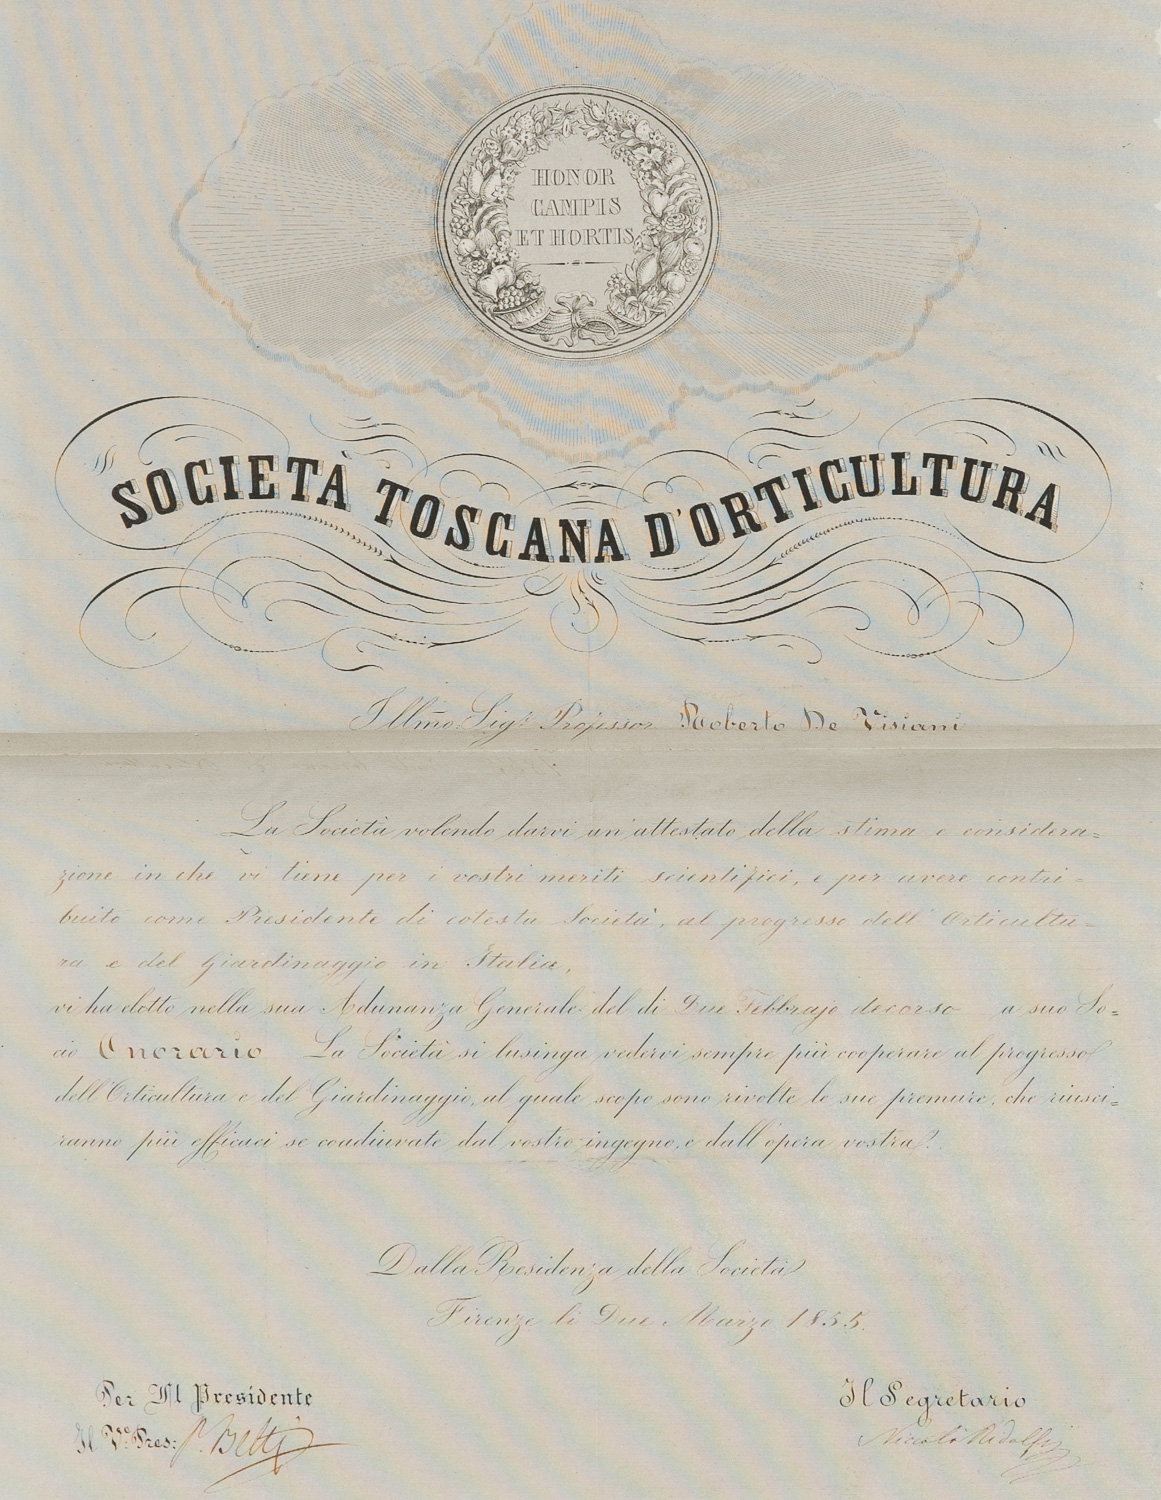 HONOR
CAMPIS
ET HORTIS
SOCIETÀ TOSCANA D'ORTICULTURA
Illmo Sigr Professor Roberto De Visiani
La Società volendo darvi un'attestato della stima e considera=
zione in che vi tiene per i vostri meriti scientifici, e per avere contri=
buito come Presidente di cotesta Società, al progresso dell'Orticultu=
ra e del Giardinaggio in Italia,
vi ha eletto nella sua Adunanza Generale del di Due Febbrajo decorso a suo So=
cio Onorario La Società si lusinga vedervi sempre più cooperare al progresso
dell'Orticultura e del Giardinaggio, al quale scopo sono rivolte le sue premure, che riusci=
ranno più efficaci se coadiuvate dal vostro ingegno, e dall'opera vostra.
Dalla Residenza della Società
Firenze li Due Marzo 1855.
Per Il Presidente
Il Ve. Pres: P. Betti
Il Segretario
Niccolò Ridolfi